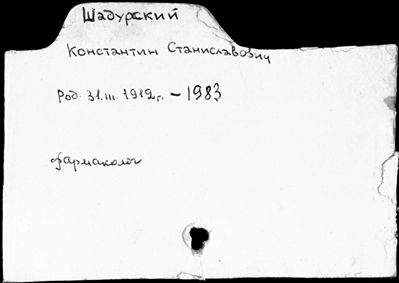 Шадурский
Константин Станиславович
Род. 31.III.1912г. – 1983
фармаколог